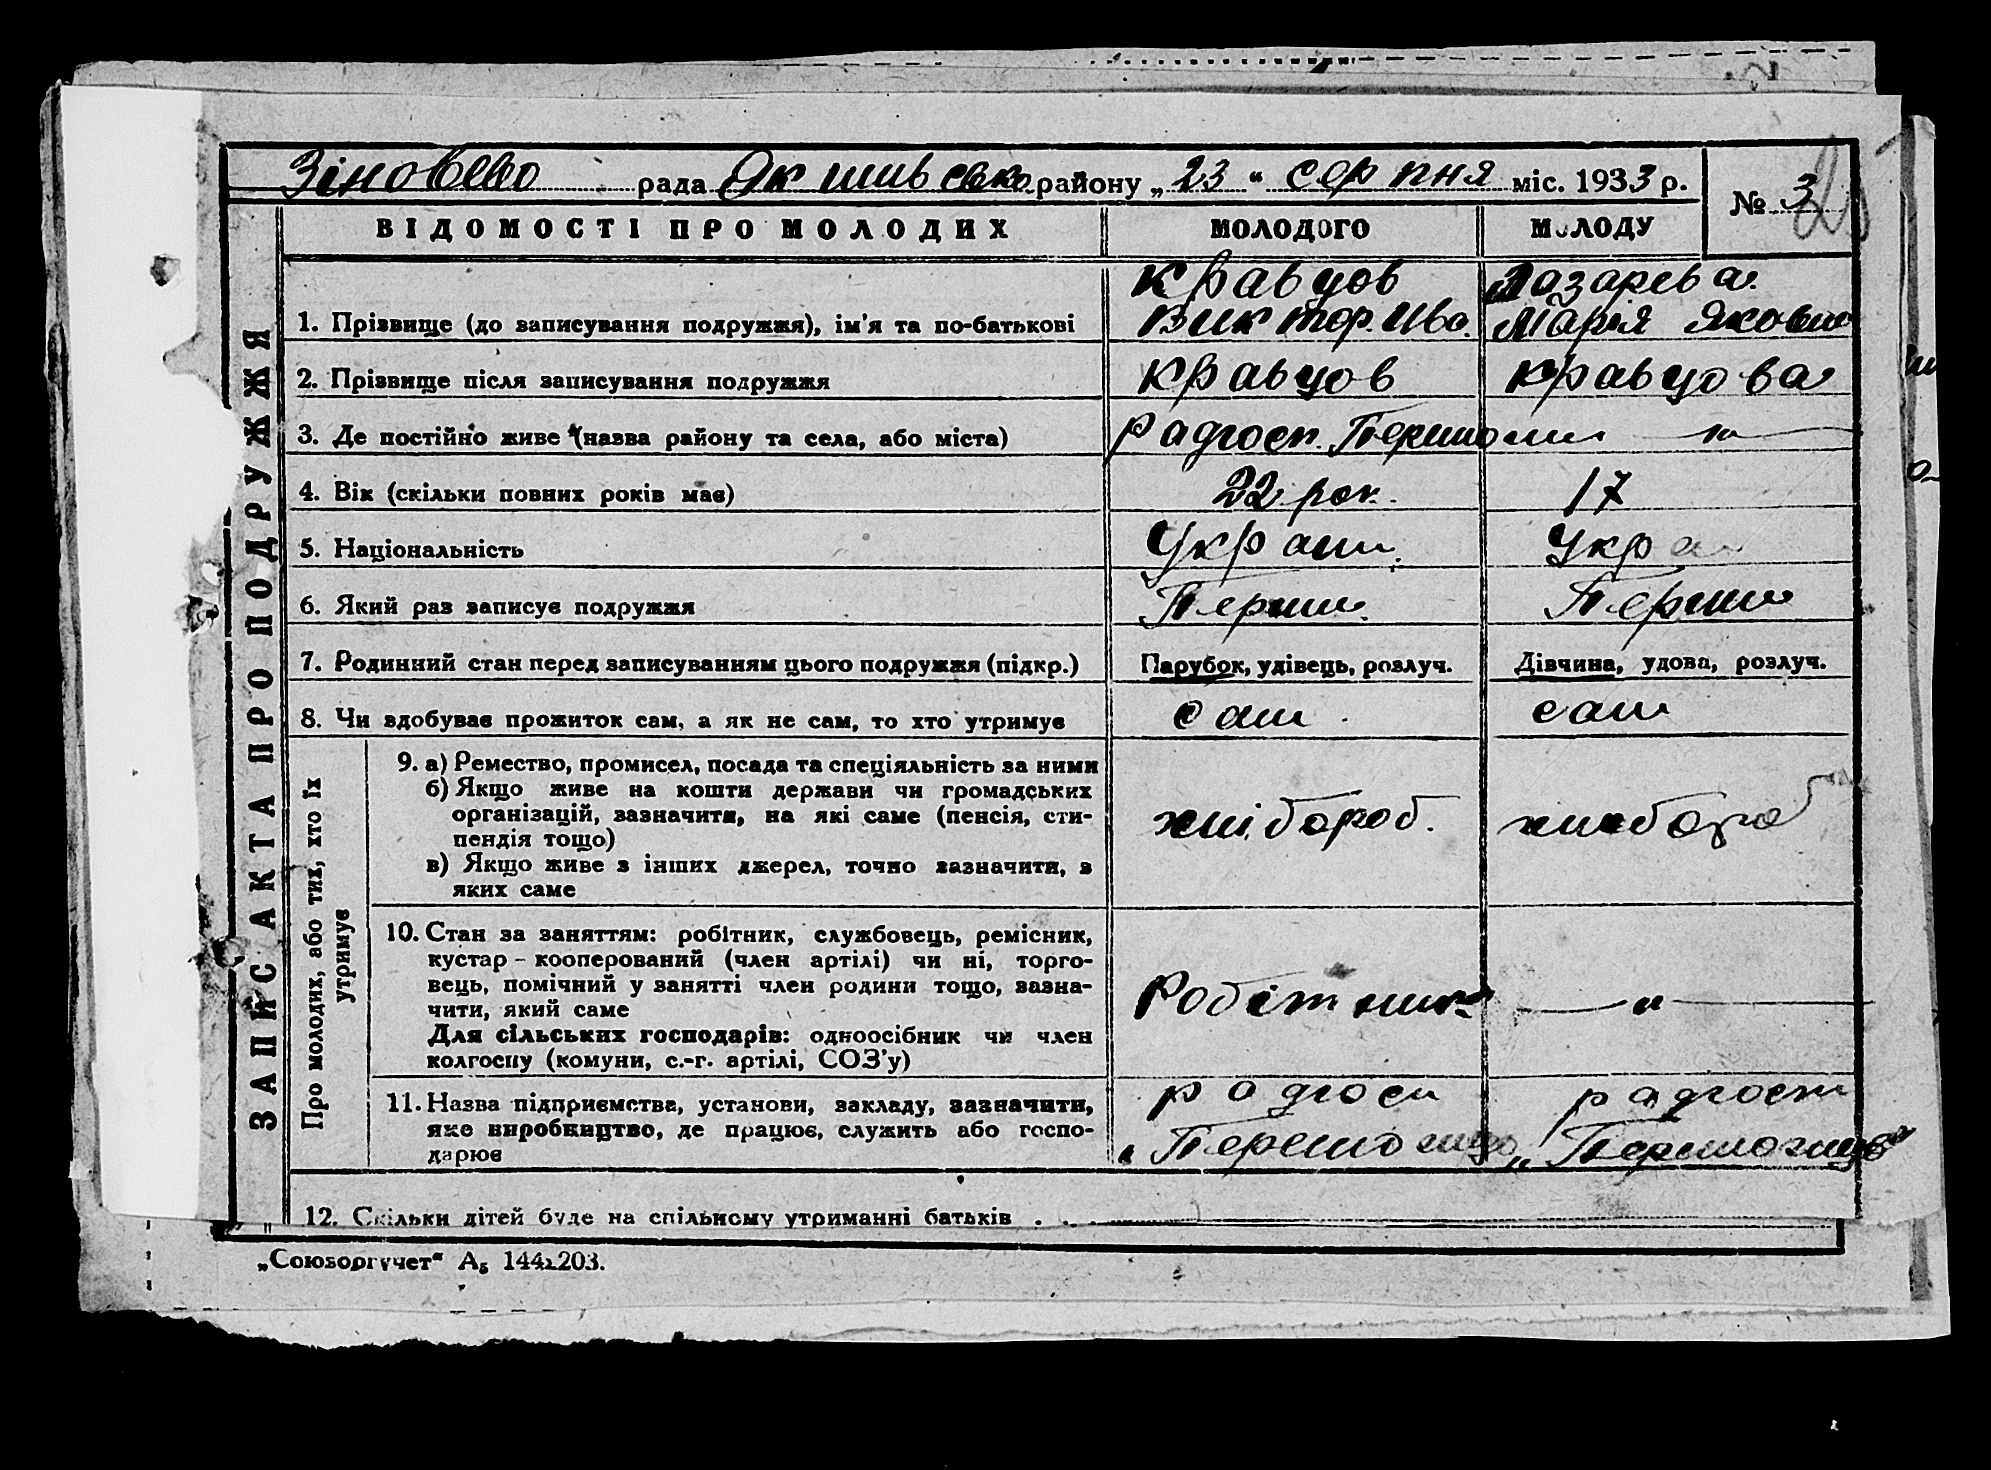 Зіновєво рада Якимівсько району „23“ серпня міс. 1933 р.
№ 3
ВІДОМОСТІ ПРО МОЛОДИХ МОЛОДОГО МОЛОДУ
ЗАПИС АКТА ПРО ПОДРУЖЖЯ
Кравцов Лазарева
1. Прізвище (до записування подружжя), ім'я та по-батькові Виктор Ива. Марія Яковл
2. Прізвище після записування подружжя Кравцов Кравцова
3. Де постійно живе (назва району та села, або міста) Радгосп. —"—
4. Вік (скільки повних років має) 22 рок. 17
5. Національність Украин. Укра
6. Який раз записує подружжя Перши. Перши
7. Родинний стан перед записуванням цього подружжя (підкр.) Парубок, удівець, розлуч. Дівчина, удова, розлуч.
8. Чи здобуває прожиток сам, а як не сам, то хто утримує сам сам
Про молодих, або тих, хто їх
утримує
9. а) Ремество, промисел, посада та спеціяльність за ними
б) Якщо живе на кошти держави чи громадських
організацій, зазначити, на які саме (пенсія, сти-
пендія тощо)
в) Якщо живе з інших джерел, точно зазначити, з
яких саме
хлібороб. хлибороб
10. Стан за заняттям: робітник, службовець, ремісник,
кустар – кооперований (член артілі) чи ні, торго-
вець, помічний у занятті член родини тощо, зазна-
чити, який саме
Для сільських господарів: одноосібник чи член
колгоспу (комуни, с.-г. артілі, СОЗ'у)
Робітник —"—
11. Назва підприємства, установи, закладу, зазначити,
яке виробництво, де працює, служить або госпо-
дарює
радгосп радгосп
12. Скільки дітей буде на спільному утриманні батьків . .
„Союзоргучет“ А5 144х203.